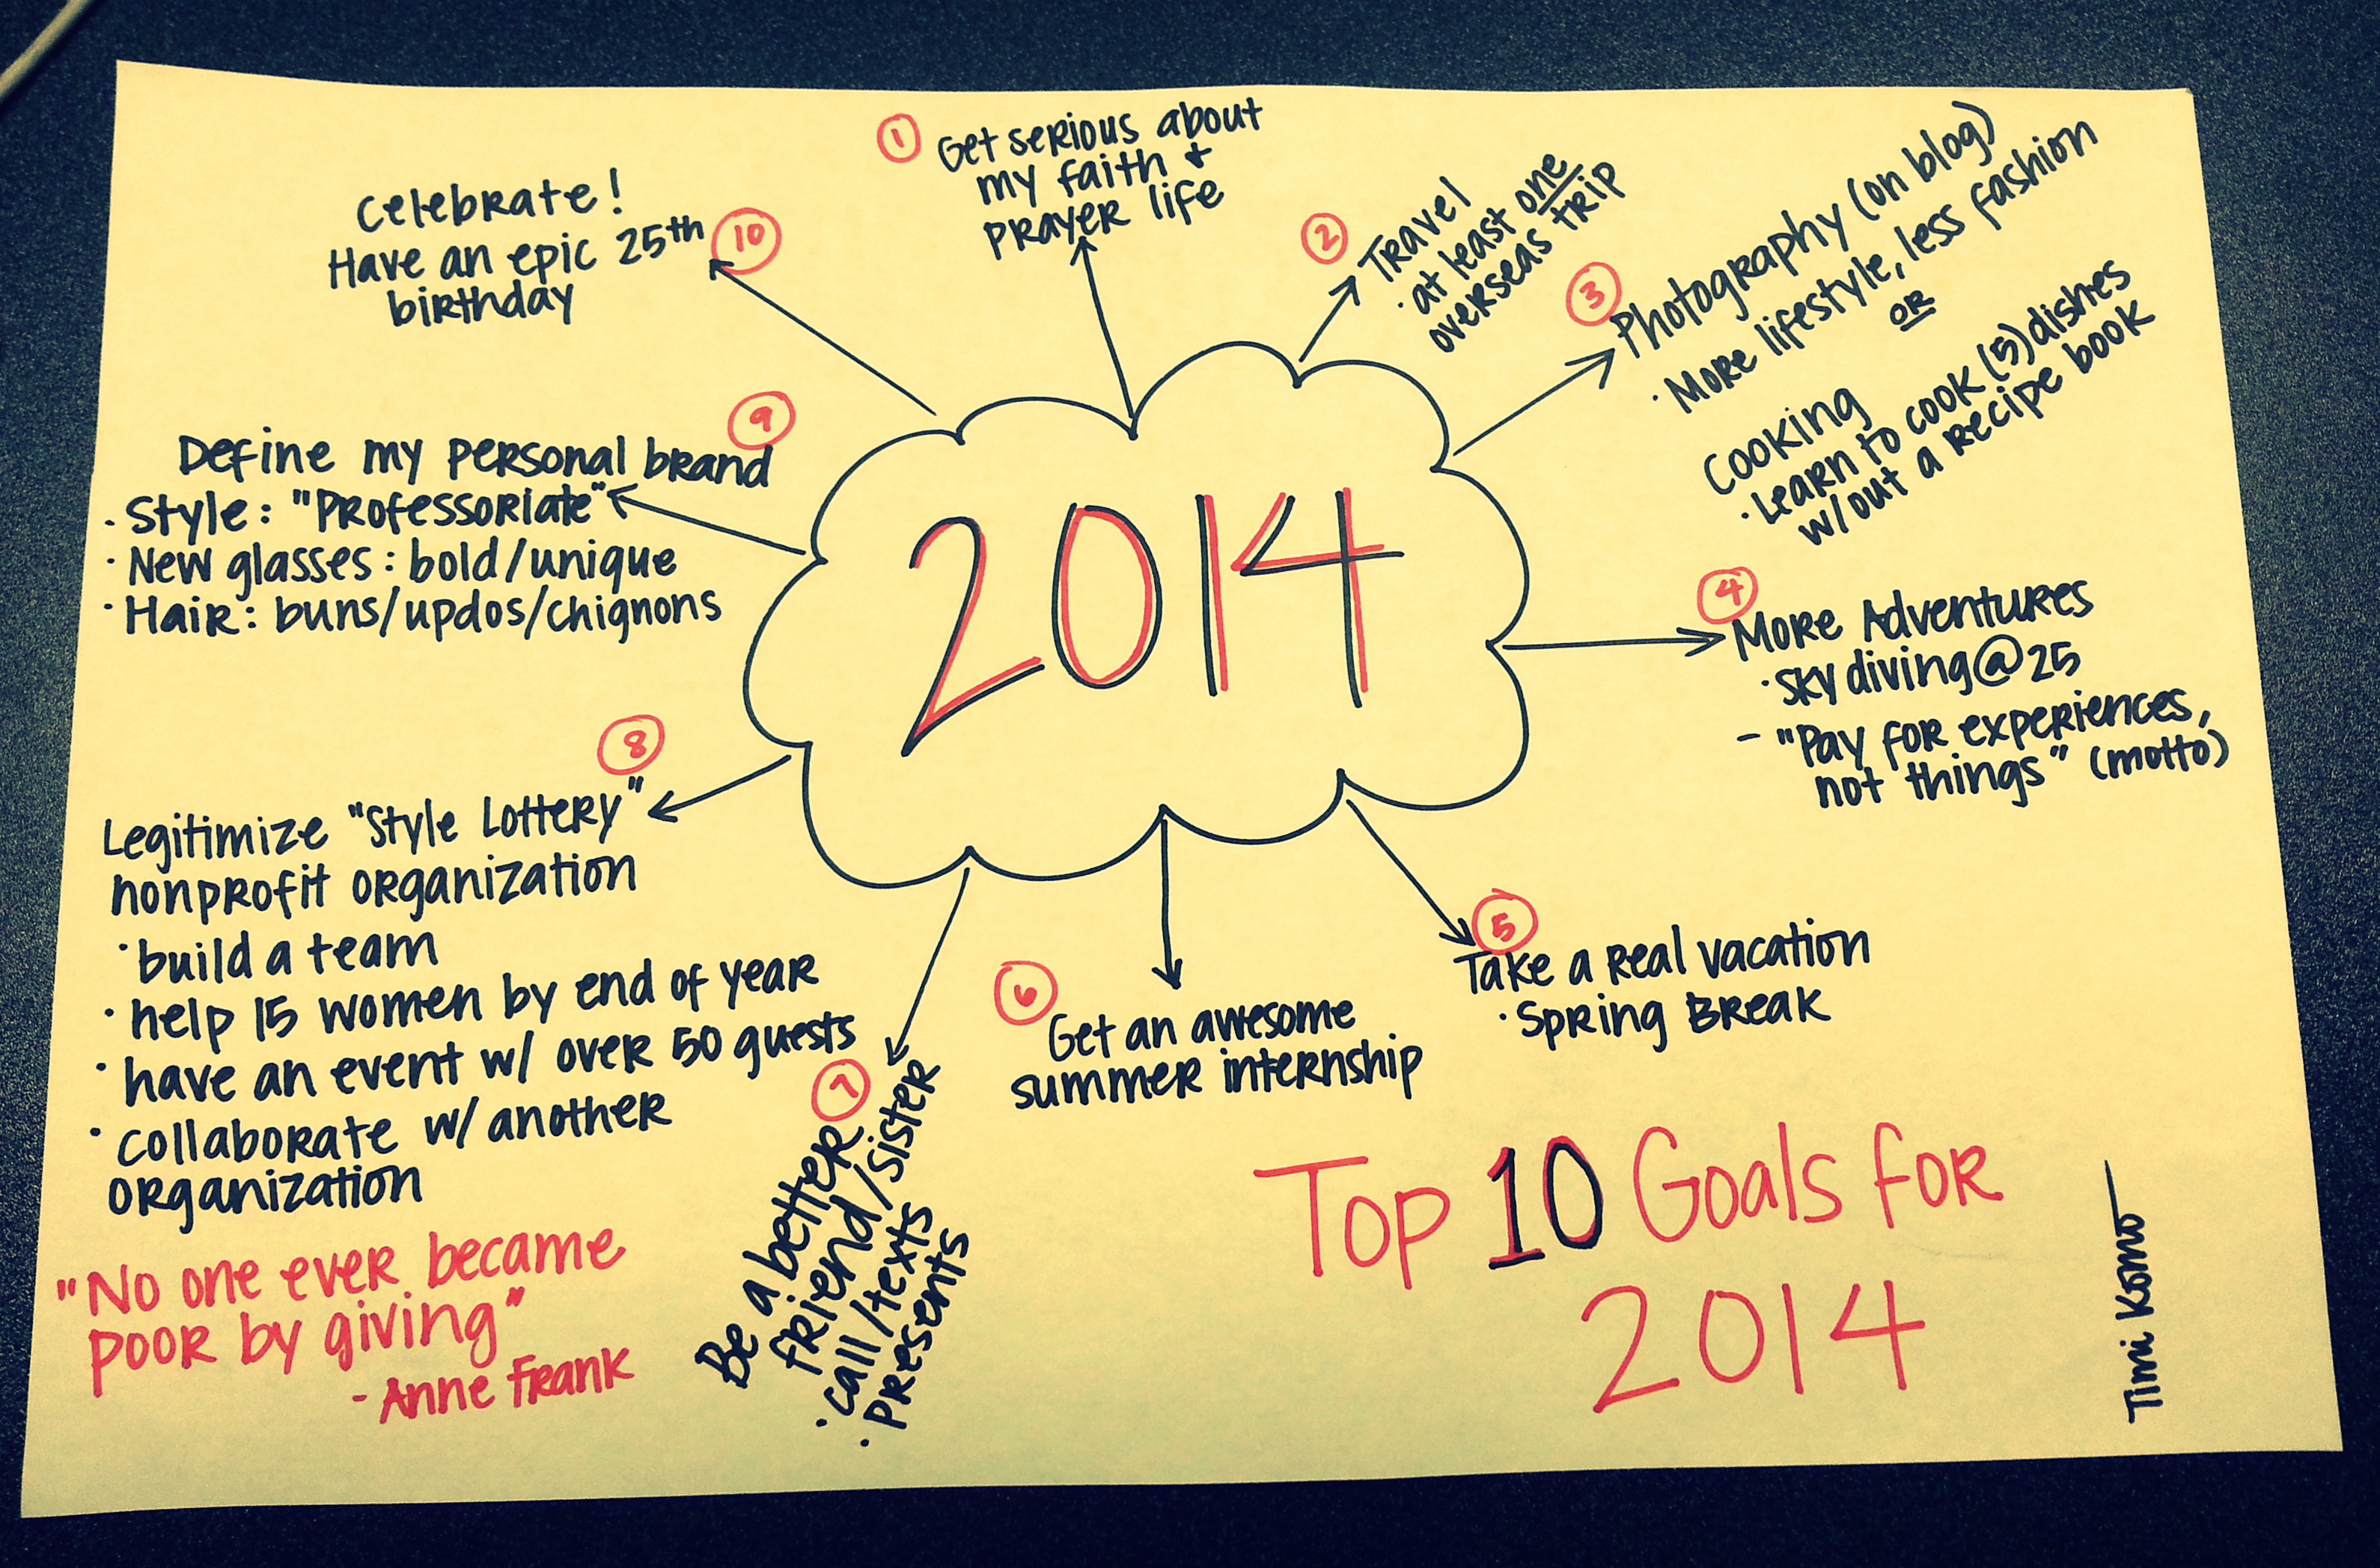 2014
1 Get serious about
my faith +
prayer life
2 Travel
· at least one
overseas trip
3 Photography (on blog)
· More lifestyle, less fashion
OR
Cooking
· Learn to cook (5) dishes
w/out a recipe book
4 More Adventures
· sky diving @ 25
- "Pay for experiences,
not things" (motto)
5 Take a real vacation
· Spring Break
6 Get an awesome
summer internship
7 Be a better
friend/sister
· call/texts
· presents
8 Legitimize "Style Lottery"
nonprofit organization
· build a team
· help 15 women by end of year
· have an event w/ over 50 guests
· collaborate w/ another
organization
9 Define my personal brand
· Style: "Professoriate"
· New glasses: bold/unique
· Hair: buns/updos/chignons
10 Celebrate!
Have an epic 25th
birthday
"No one ever became
poor by giving"
- Anne Frank
Top 10 Goals for
2014
Timi Komo